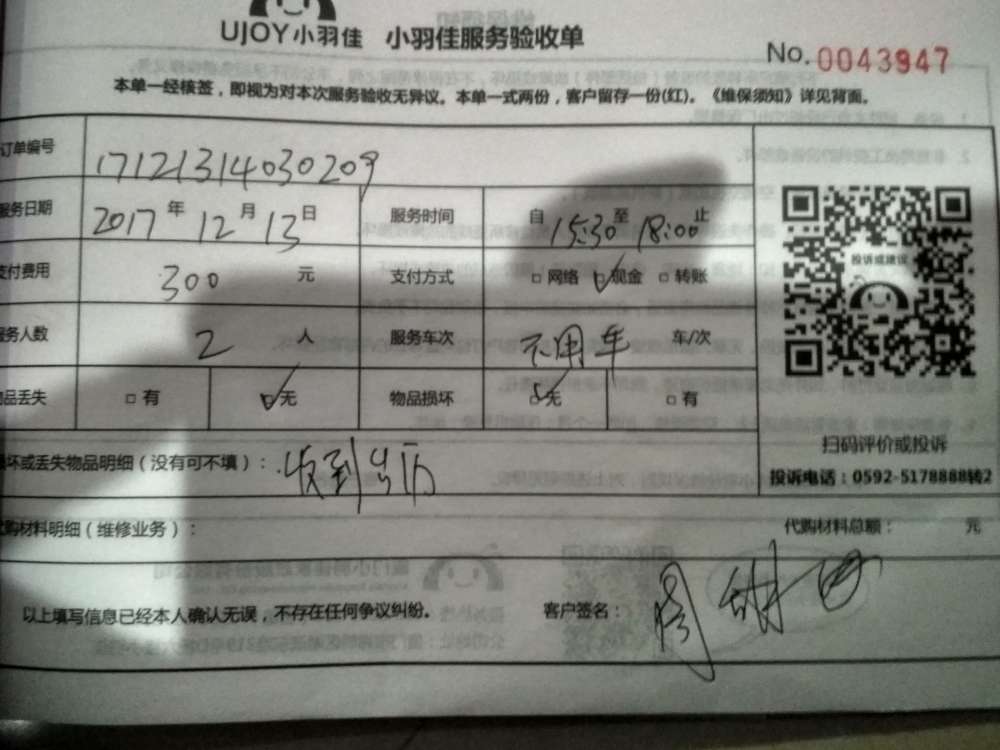 UJOY小羽佳 小羽佳服务验收单
No. 0043947
本单一经核签，即视为对本次服务验收无异议。本单一式两份，客户留存一份(红)。《维保须知》详见背面。
订单编号 17121314030209
服务日期 2017 年 12 月 13 日 服务时间 自 15:30 至 18:00 止
支付费用 300 元 支付方式 □ 网络 ☑ 现金 □ 转账
服务人数 2 人 服务车次 不用车 车/次
物品丢失 □ 有 ☑ 无 物品损坏 ☑ 无 □ 有
投诉或建议
扫码评价或投诉
投诉电话：0592-5178888转2
损坏或丢失物品明细（没有可不填）： 收到台历
代购材料明细（维修业务）： 代购材料总额： 元
以上填写信息已经本人确认无误，不存在任何争议纠纷。 客户签名：